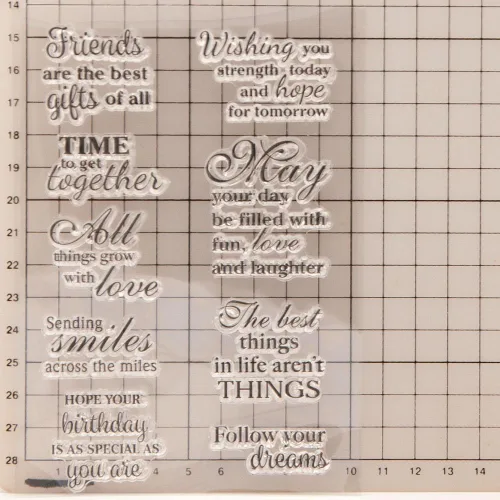 Friends
are the best
gifts of all
TIME
to get
together
All
things grow
with love
Sending
smiles
across the miles
HOPE YOUR
birthday
IS AS SPECIAL AS
you are
Wishing you
strength today
and hope
for tomorrow
May
your day
be filled with
fun, love
and laughter
The best
things
in life aren't
THINGS
Follow your
dreams
14
15
16
17
18
19
20
21
22
23
24
25
26
27
28
1 2 5 6 10 11 12 13 14